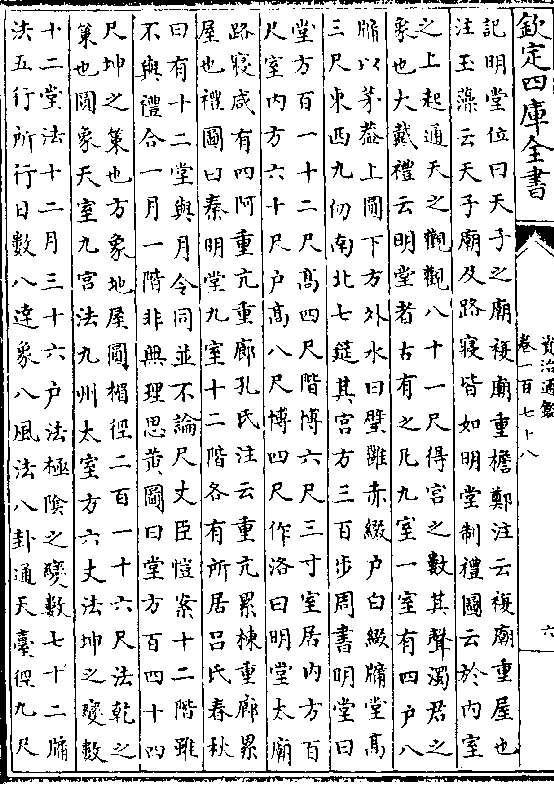 欽定四庫全書
記明堂位曰天子之廟複廟重檐鄭注云複廟重屋也
注玉藻云天子廟及路寢皆如明堂制禮圖云於内室
之上起通天之觀觀八十一尺得宮之數其聲濁君之
象也大戴禮云明堂者古有之凡九室一室有四户八
牖以茅蓋上圓下方外水曰璧雝赤綴户白綴牖堂高
三尺東西九仞南北七筵其宮方三百步周書明堂曰
堂方百一十二尺高四尺階博六尺三寸室居内方百
尺室内方六十尺户高八尺博四尺作洛曰明堂太廟
路寢咸有四阿重亢重廊孔氏注云重亢累棟重廊累
屋也禮圖曰秦明堂九室十二階各有所居吕氏春秋
曰有十二堂與月令同並不論尺丈臣愷案十二階雖
不與禮合一月一階非無理思黄圖曰堂方百四十四
尺坤之策也方象地屋圓楣徑二百一十六尺法乾之
策也圓象天室九宮法九州太室方六丈法坤之變數
十二堂法十二月三十六户法極陰之變數七十二牖
法五行所行日數八達象八風法八卦通天臺徑九尺
資治通鑑
卷一百七十八
六